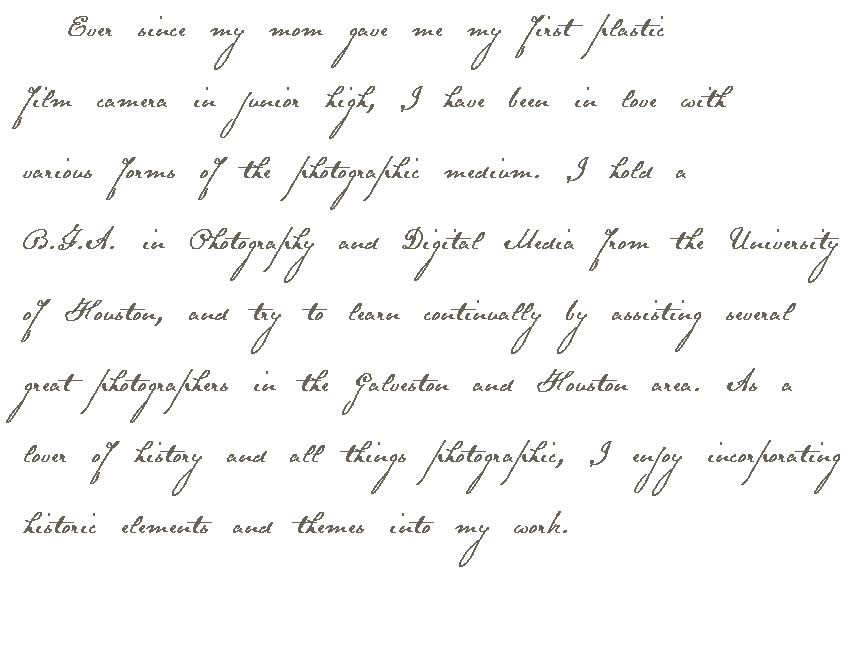 Ever since my mom gave me my first plastic
film camera in junior high, I have been in love with
various forms of the photographic medium. I hold a
B.F.A. in Photography and Digital Media from the University
of Houston, and try to learn continually by assisting several
great photographers in the Galveston and Houston area. As a
lover of history and all things photographic, I enjoy incorporating
historic elements and themes into my work.